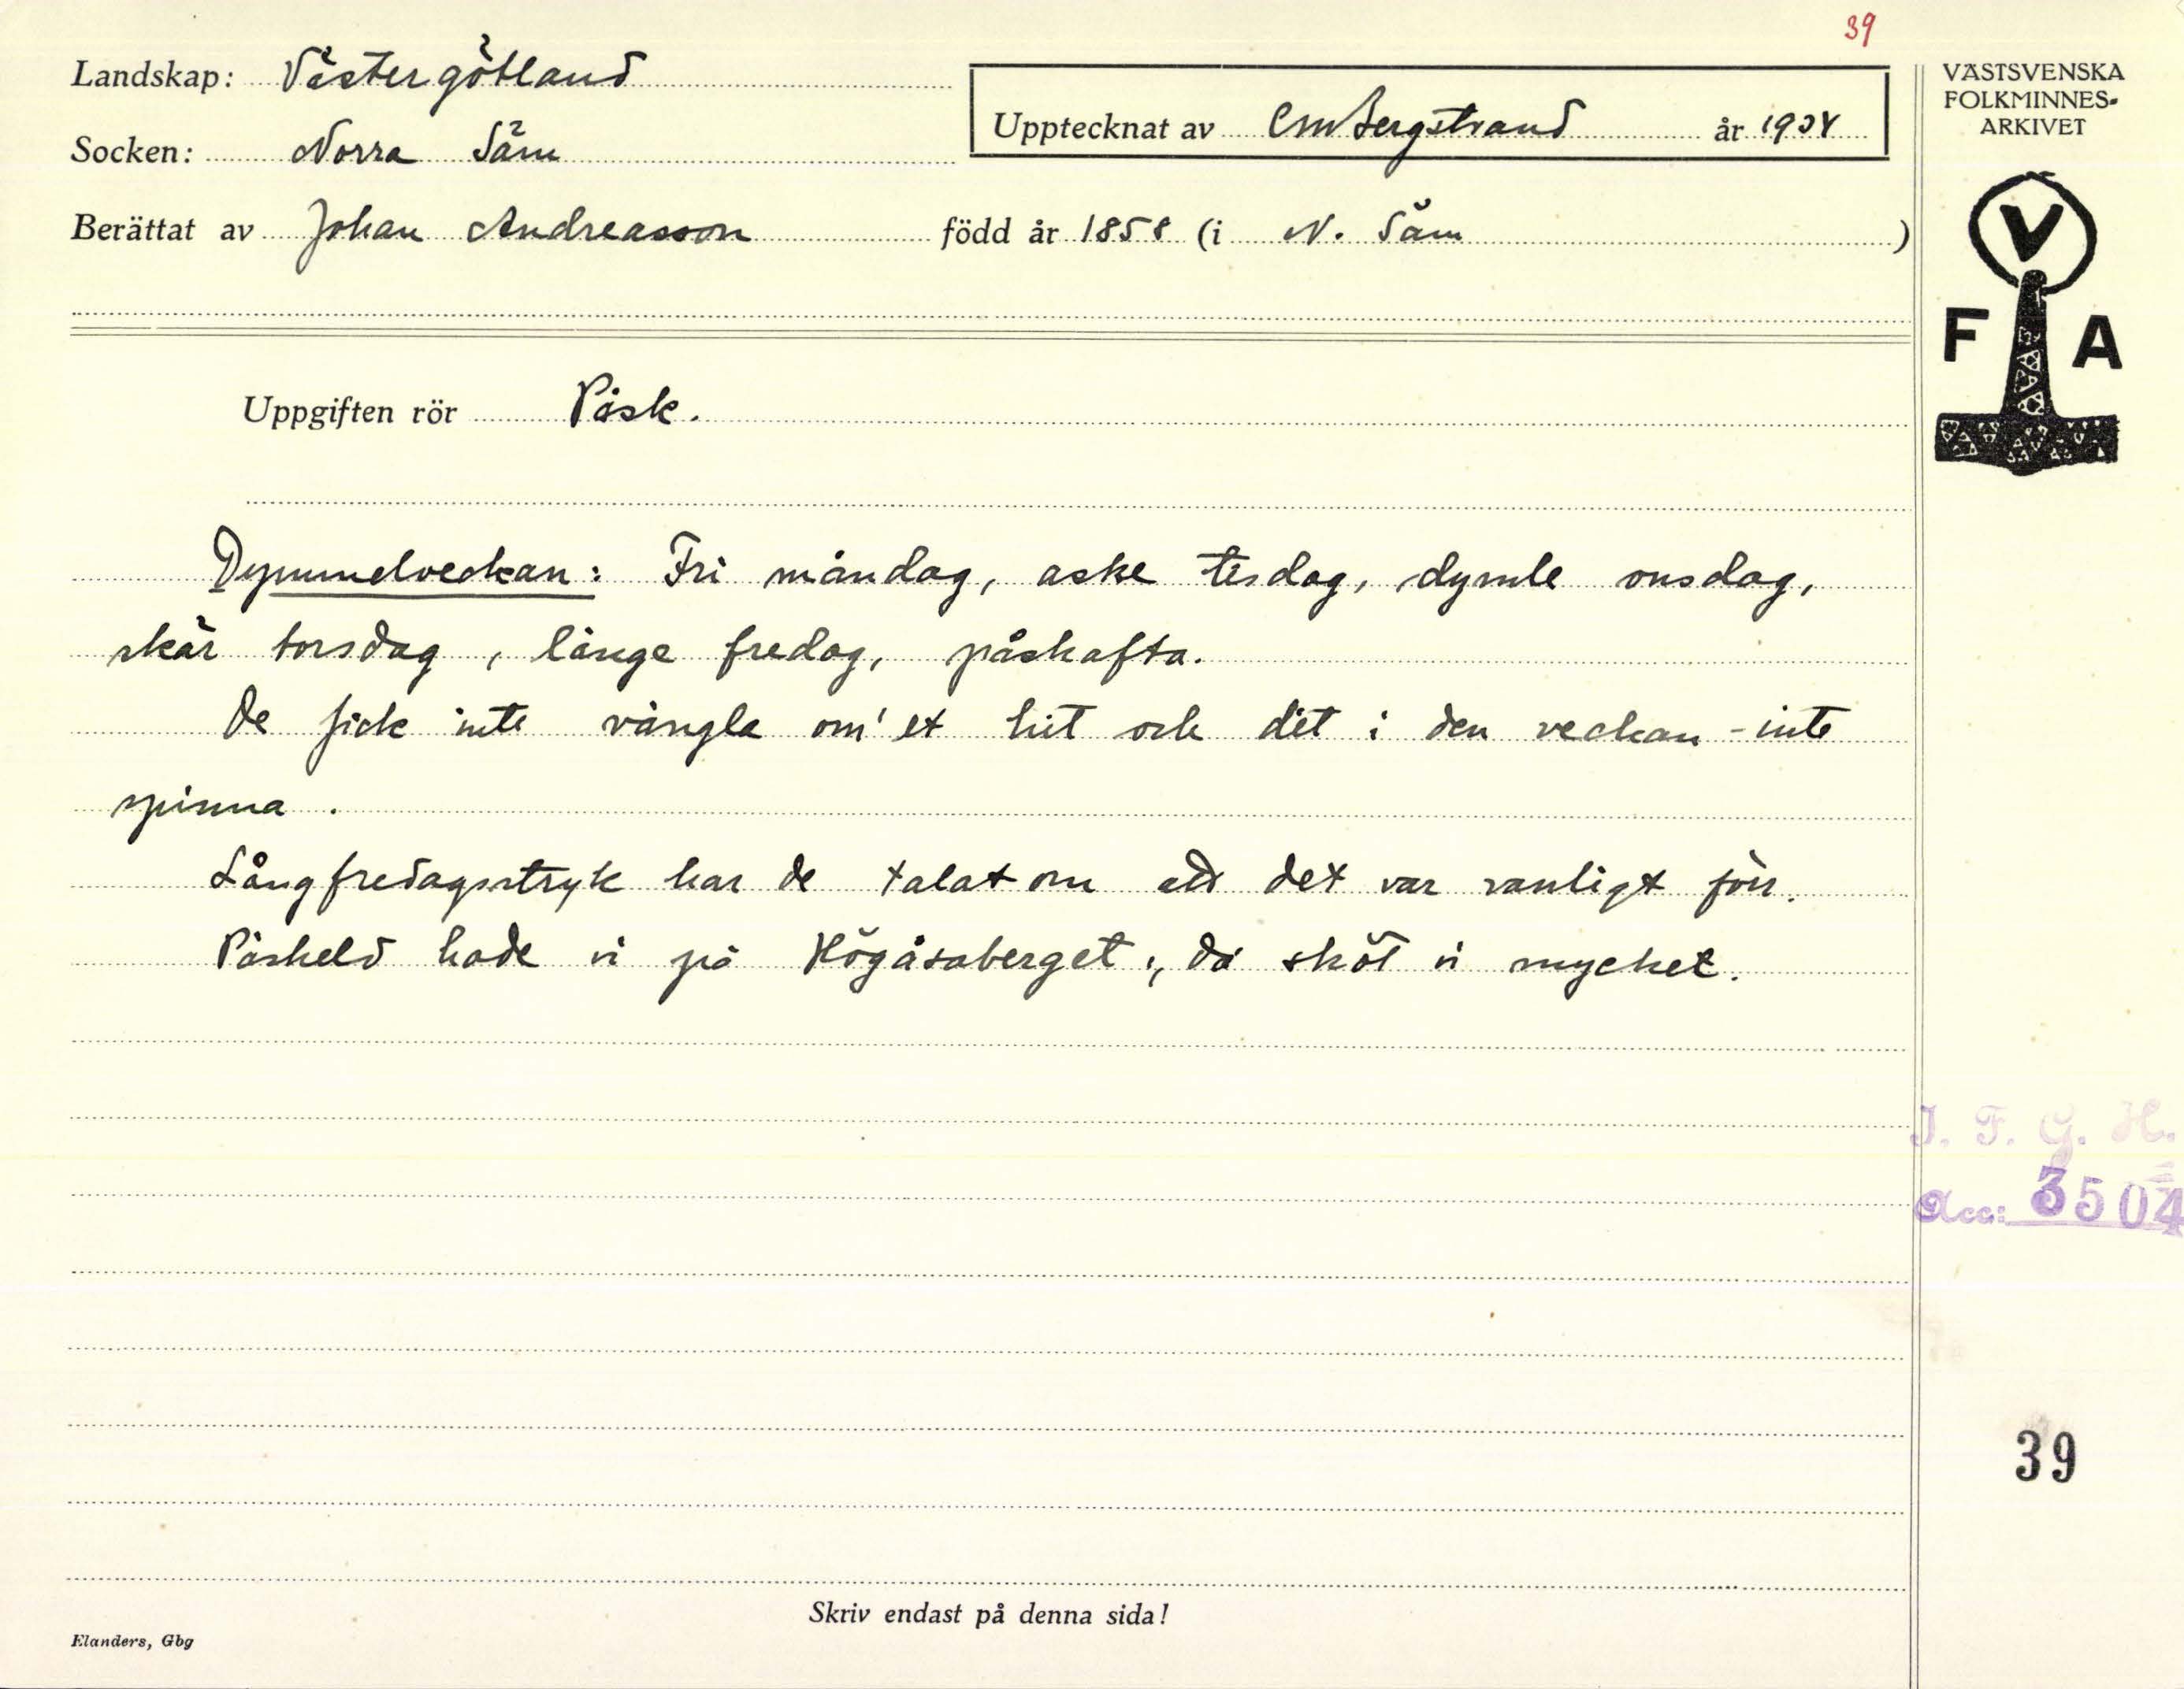 39
Landskap: Västergötland
Upptecknat av CM Bergstrand år 1934
Socken: Norra Säm
Berättat av Johan Andreasson född år 1858 (i N. Säm )
VÄSTSVENSKA
FOLKMINNES-
ARKIVET
V
F A
Uppgiften rör Påsk.
Dymmelveckan: Fri måndag, aske tisdag, dymle onsdag,
skär torsdag, länge fredag, påskafta.
De fick inte vängla om' et hit och dit i den veckan - inte
spinna.
Långfredagsstryk har de talat om att det var vanligt förr.
Påskeld hade vi på Högåsaberget, då sköt vi mycket.
I. F. G. H.
Acc: 3504
39
Skriv endast på denna sida!
Elanders, Gbg